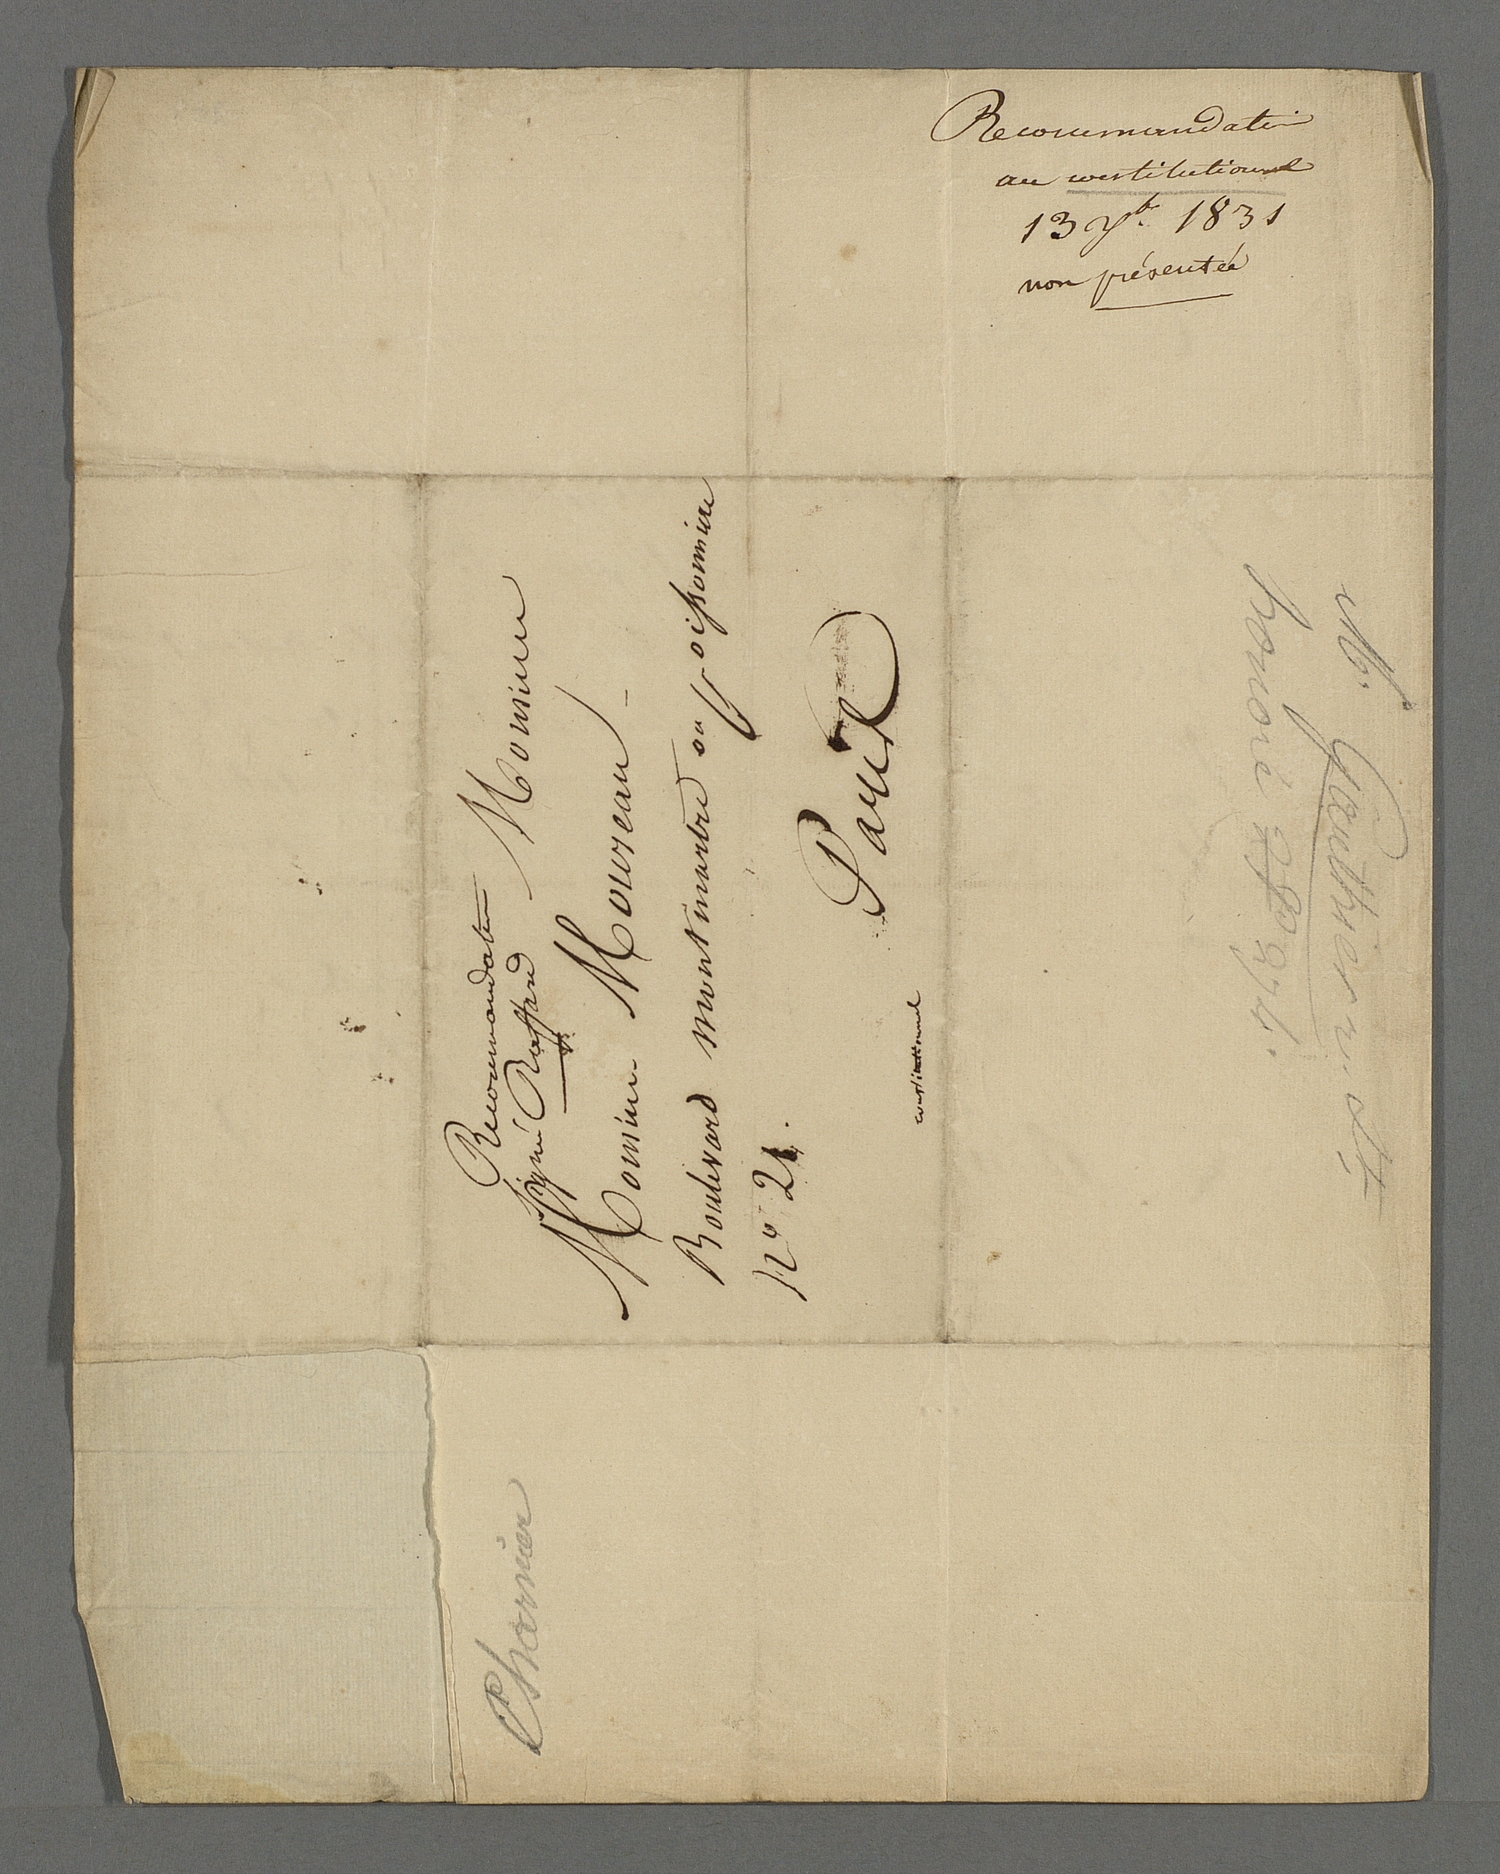 Recommandation
au constitutionnel
13 7bre 1831
non présentée
Recommandation
signé Raffard
Monsieur
Monsieur Moureau
Boulevard montmartre ou poissonniere
no 21.
Paris
constitutionnel
Mr. Gauthier r. St
honoré 374.
Charrier